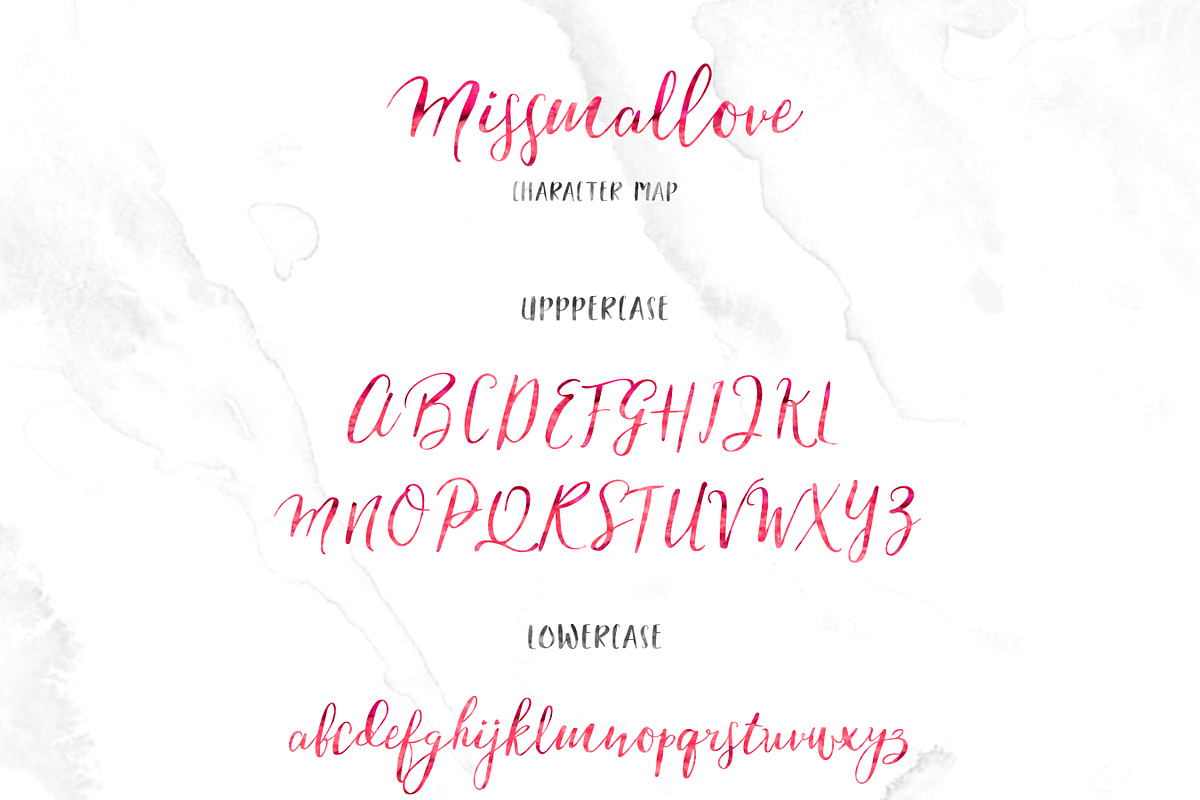 Missmallove
CHARACTER MAP
UPPPERCASE
ABCDEFGHIJKL
MNOPQRSTUVWXYZ
LOWERCASE
abcdefghijklmnopqrstuvwxyz